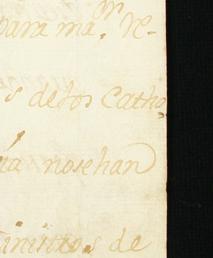 para ma.ᵒʳ Re-
s delos Catho
ia nosehan
inistros de